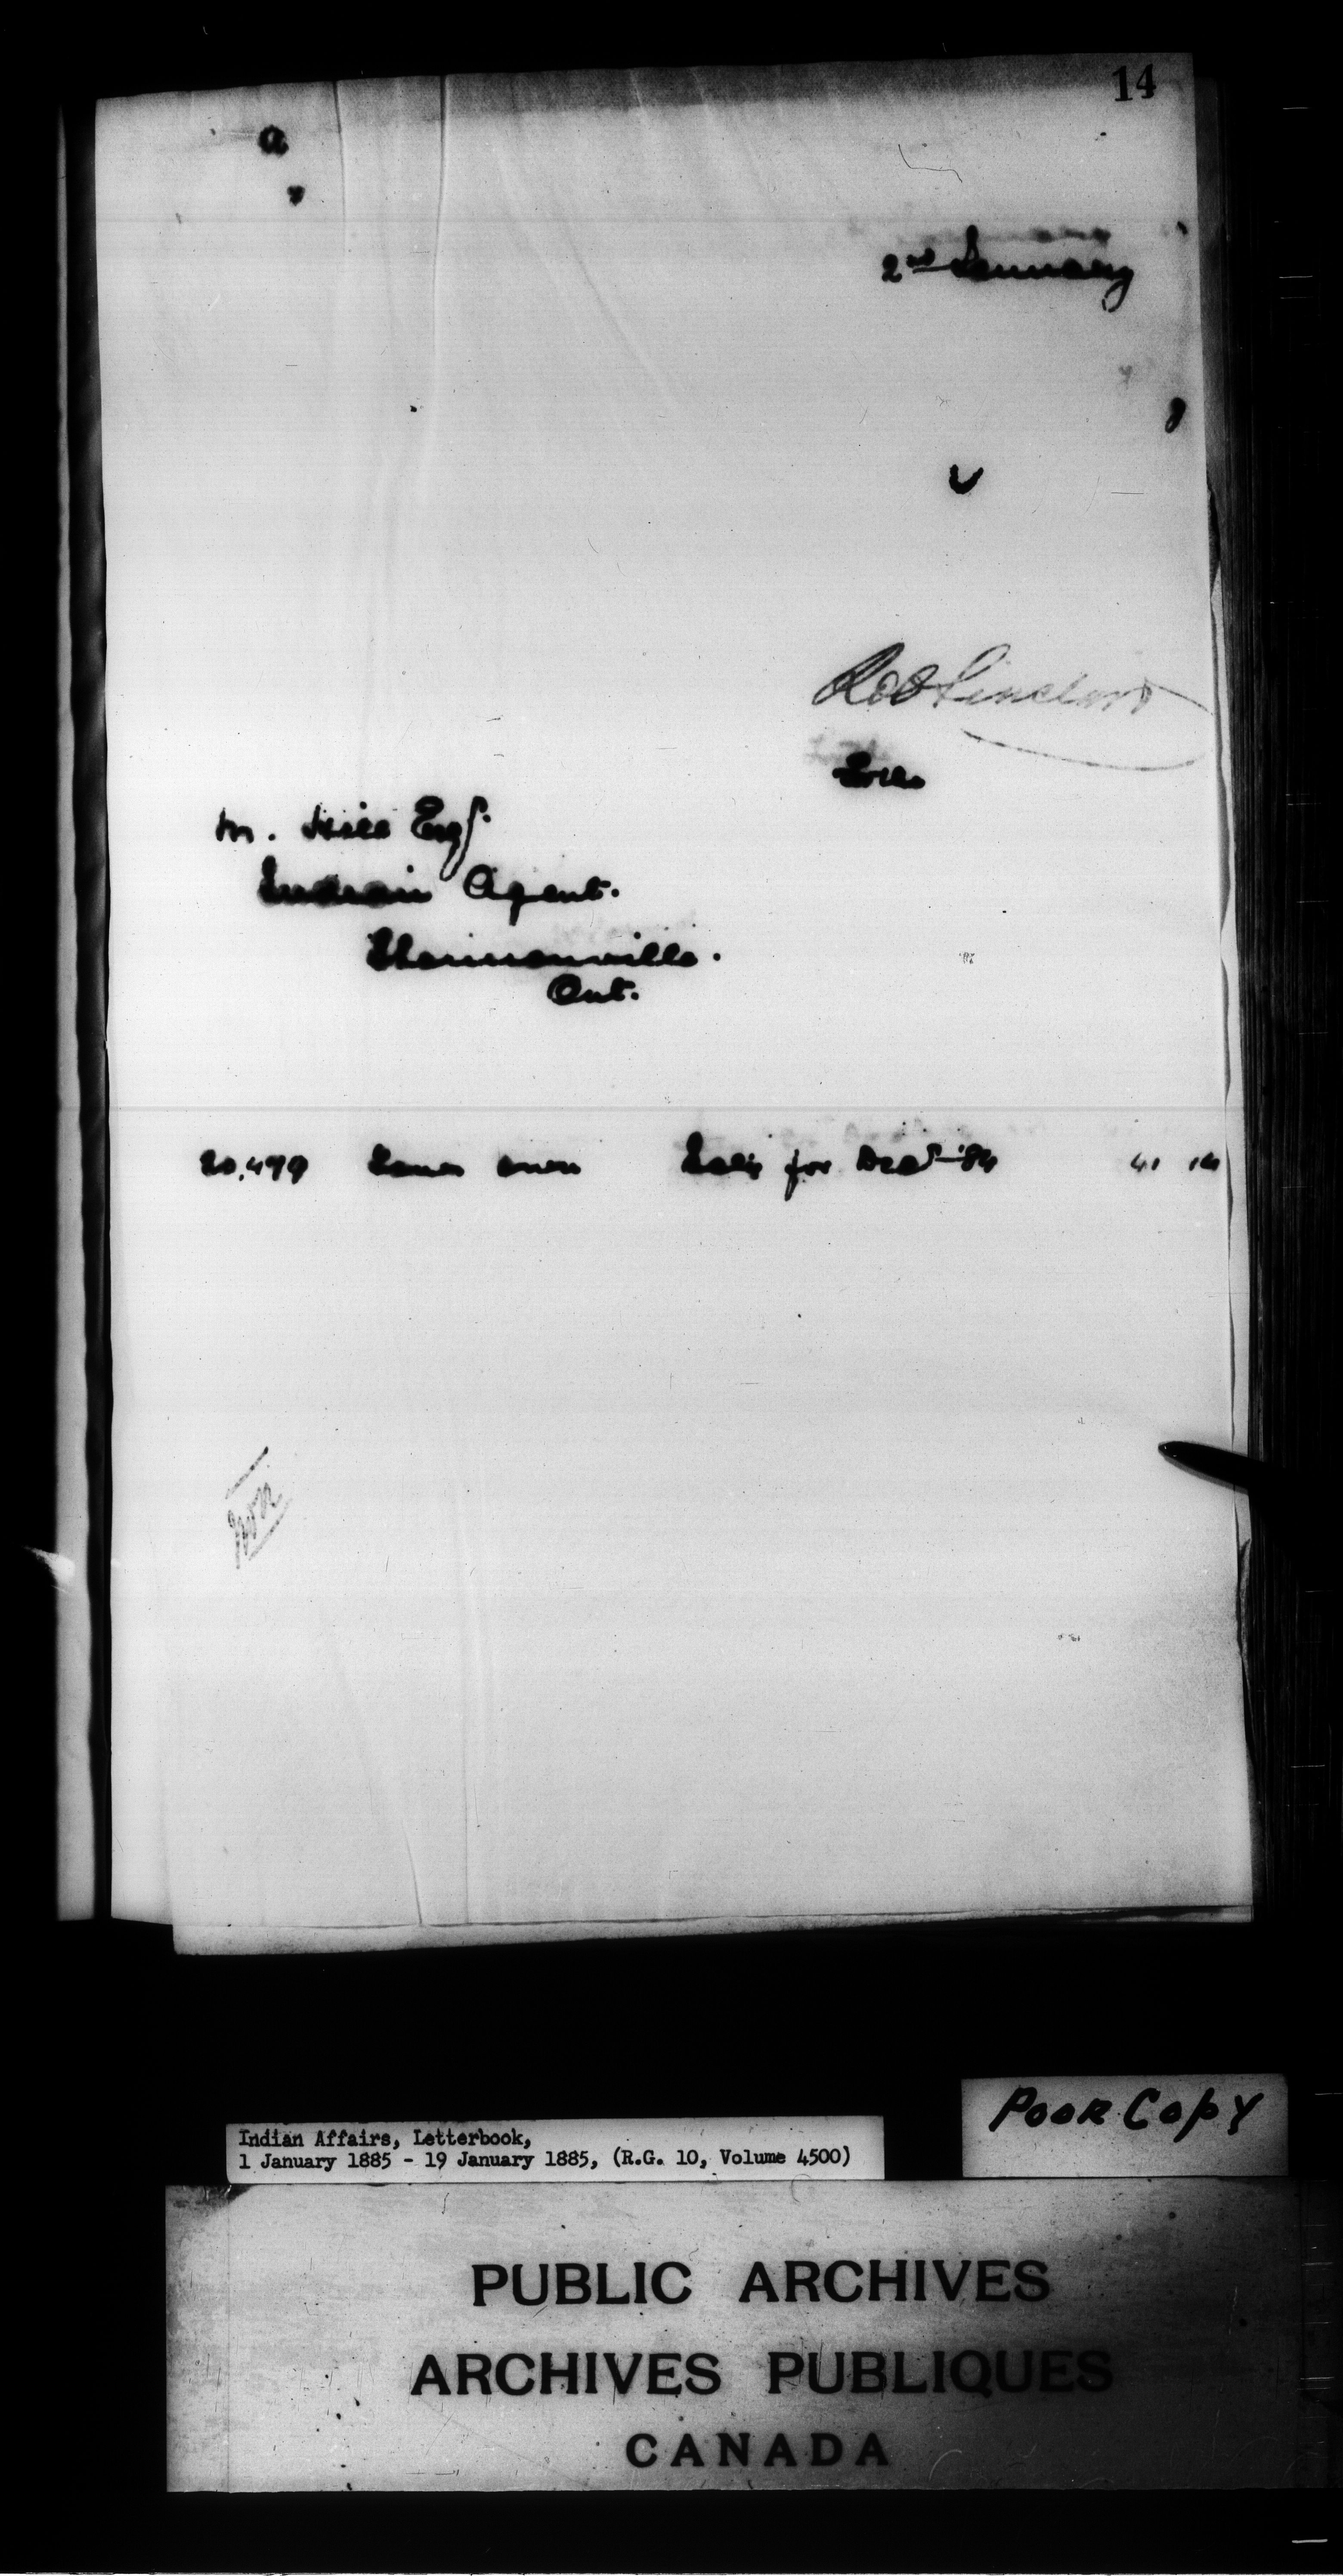 14
a
2nd January
Rob Sinclair
M. Hill Esqr.
Indian Agent.
Shannonville.
Ont.
20,499 for Decr '84 41 14
Poor Copy
Indian Affairs, Letterbook,
1 January 1885 - 19 January 1885, (R.G. 10, Volume 4500)
PUBLIC ARCHIVES
ARCHIVES PUBLIQUES
CANADA